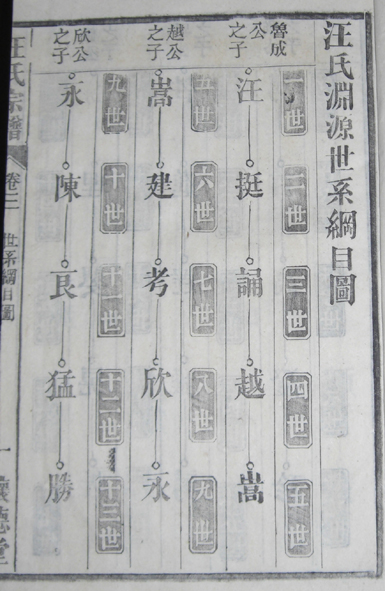 汪氏淵源世系綱目圖
一世 二世 三世 四世 五世
魯成公之子
汪 挺 誦 越 嵩
五世 六世 七世 八世 九世
越公之子
嵩 建 考 欣 永
九世 十世 十一世 十二世 十三世
欣公之子
永 陳 良 猛 勝
汪氏宗譜 卷二 世系綱目圖 一